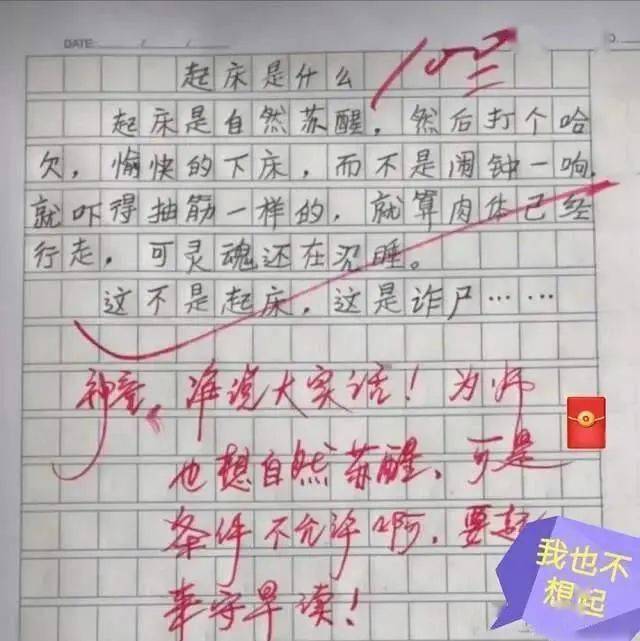 DATE:
起床是什么
100
起床是自然苏醒，然后打个哈
欠，愉快的下床，而不是闹钟一响，
就吓得抽筋一样的，就算肉体已经
行走，可灵魂还在沉睡。
这不是起床，这是诈尸……
神童，准说大实话！为师
也想自然苏醒，可是
条件不允许啊，要起
来守早读！
我也不
想起